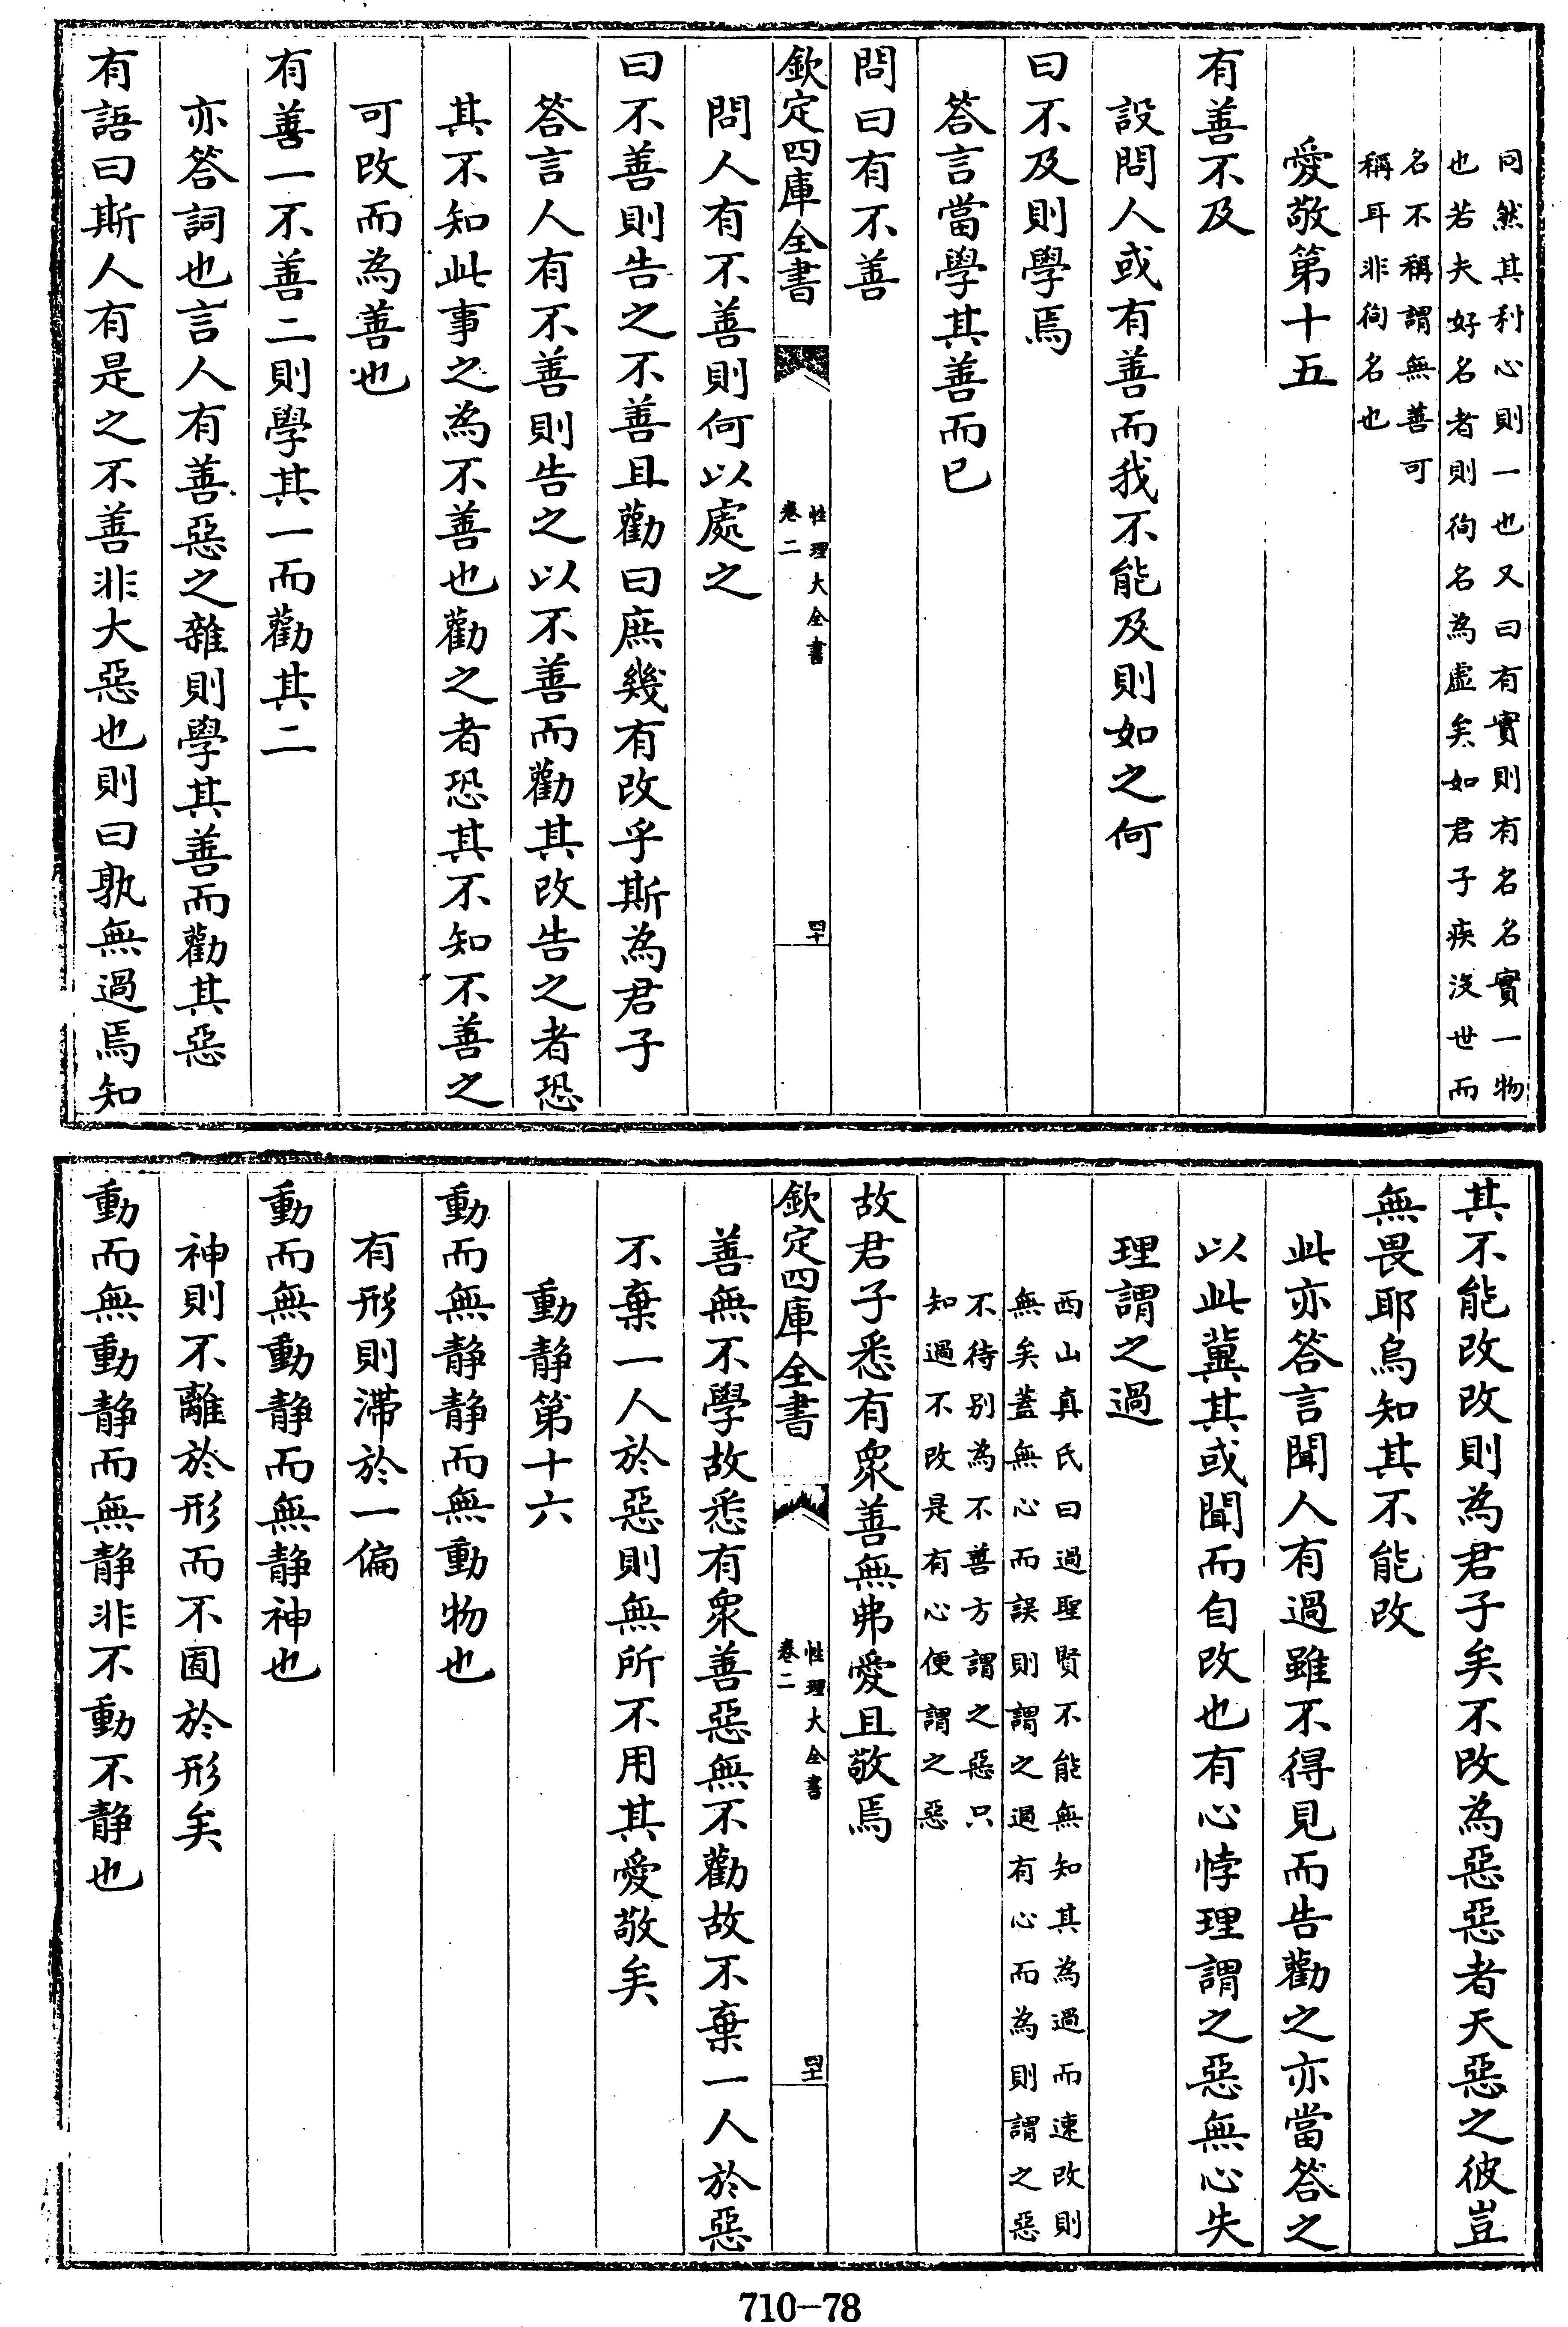 同然其利心則一也又曰有實則有名名實一物
也若夫好名者則徇名為虛矣如君子疾沒世而
名不稱謂無善可
稱耳非徇名也
愛敬第十五
有善不及
設問人或有善而我不能及則如之何
曰不及則學焉
答言當學其善而已
問曰有不善
欽定四庫全書
性理大全書
卷二
四十
問人有不善則何以處之
曰不善則告之不善且勸曰庶幾有改乎斯為君子
答言人有不善則告之以不善而勸其改告之者恐
其不知此事之為不善也勸之者恐其不知不善之
可改而為善也
有善一不善二則學其一而勸其二
亦答詞也言人有善惡之雜則學其善而勸其惡
有語曰斯人有是之不善非大惡也則曰孰無過焉知
其不能改改則為君子矣不改為惡惡者天惡之彼豈
無畏耶烏知其不能改
此亦答言聞人有過雖不得見而告勸之亦當答之
以此冀其或聞而自改也有心悖理謂之惡無心失
理謂之過
西山真氏曰過聖賢不能無知其為過而速改則
無矣蓋無心而誤則謂之過有心而為則謂之惡
不待别為不善方謂之惡只
知過不改是有心便謂之惡
故君子悉有衆善無弗愛且敬焉
欽定四庫全書
性理大全書
卷二
四十一
善無不學故悉有衆善惡無不勸故不棄一人於惡
不棄一人於惡則無所不用其愛敬矣
動静第十六
動而無静静而無動物也
有形則滯於一偏
動而無動静而無静神也
神則不離於形而不囿於形矣
動而無動静而無静非不動不静也
710-78